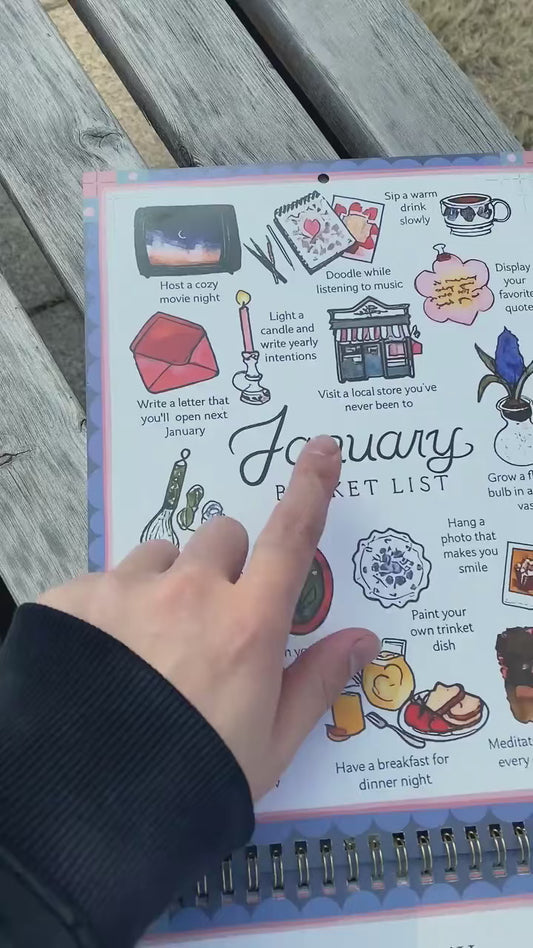 Sip a warm
drink
slowly
Host a cozy
movie night
Doodle while
listening to music
Display
your
favorite
quote
Light a
candle and
write yearly
intentions
Write a letter that
you'll open next
January
Visit a local store you've
never been to
January
LIST
Grow a
bulb in a
Hang a
photo that
makes you
smile
Paint your
own trinket
dish
Have a breakfast for
dinner night
every